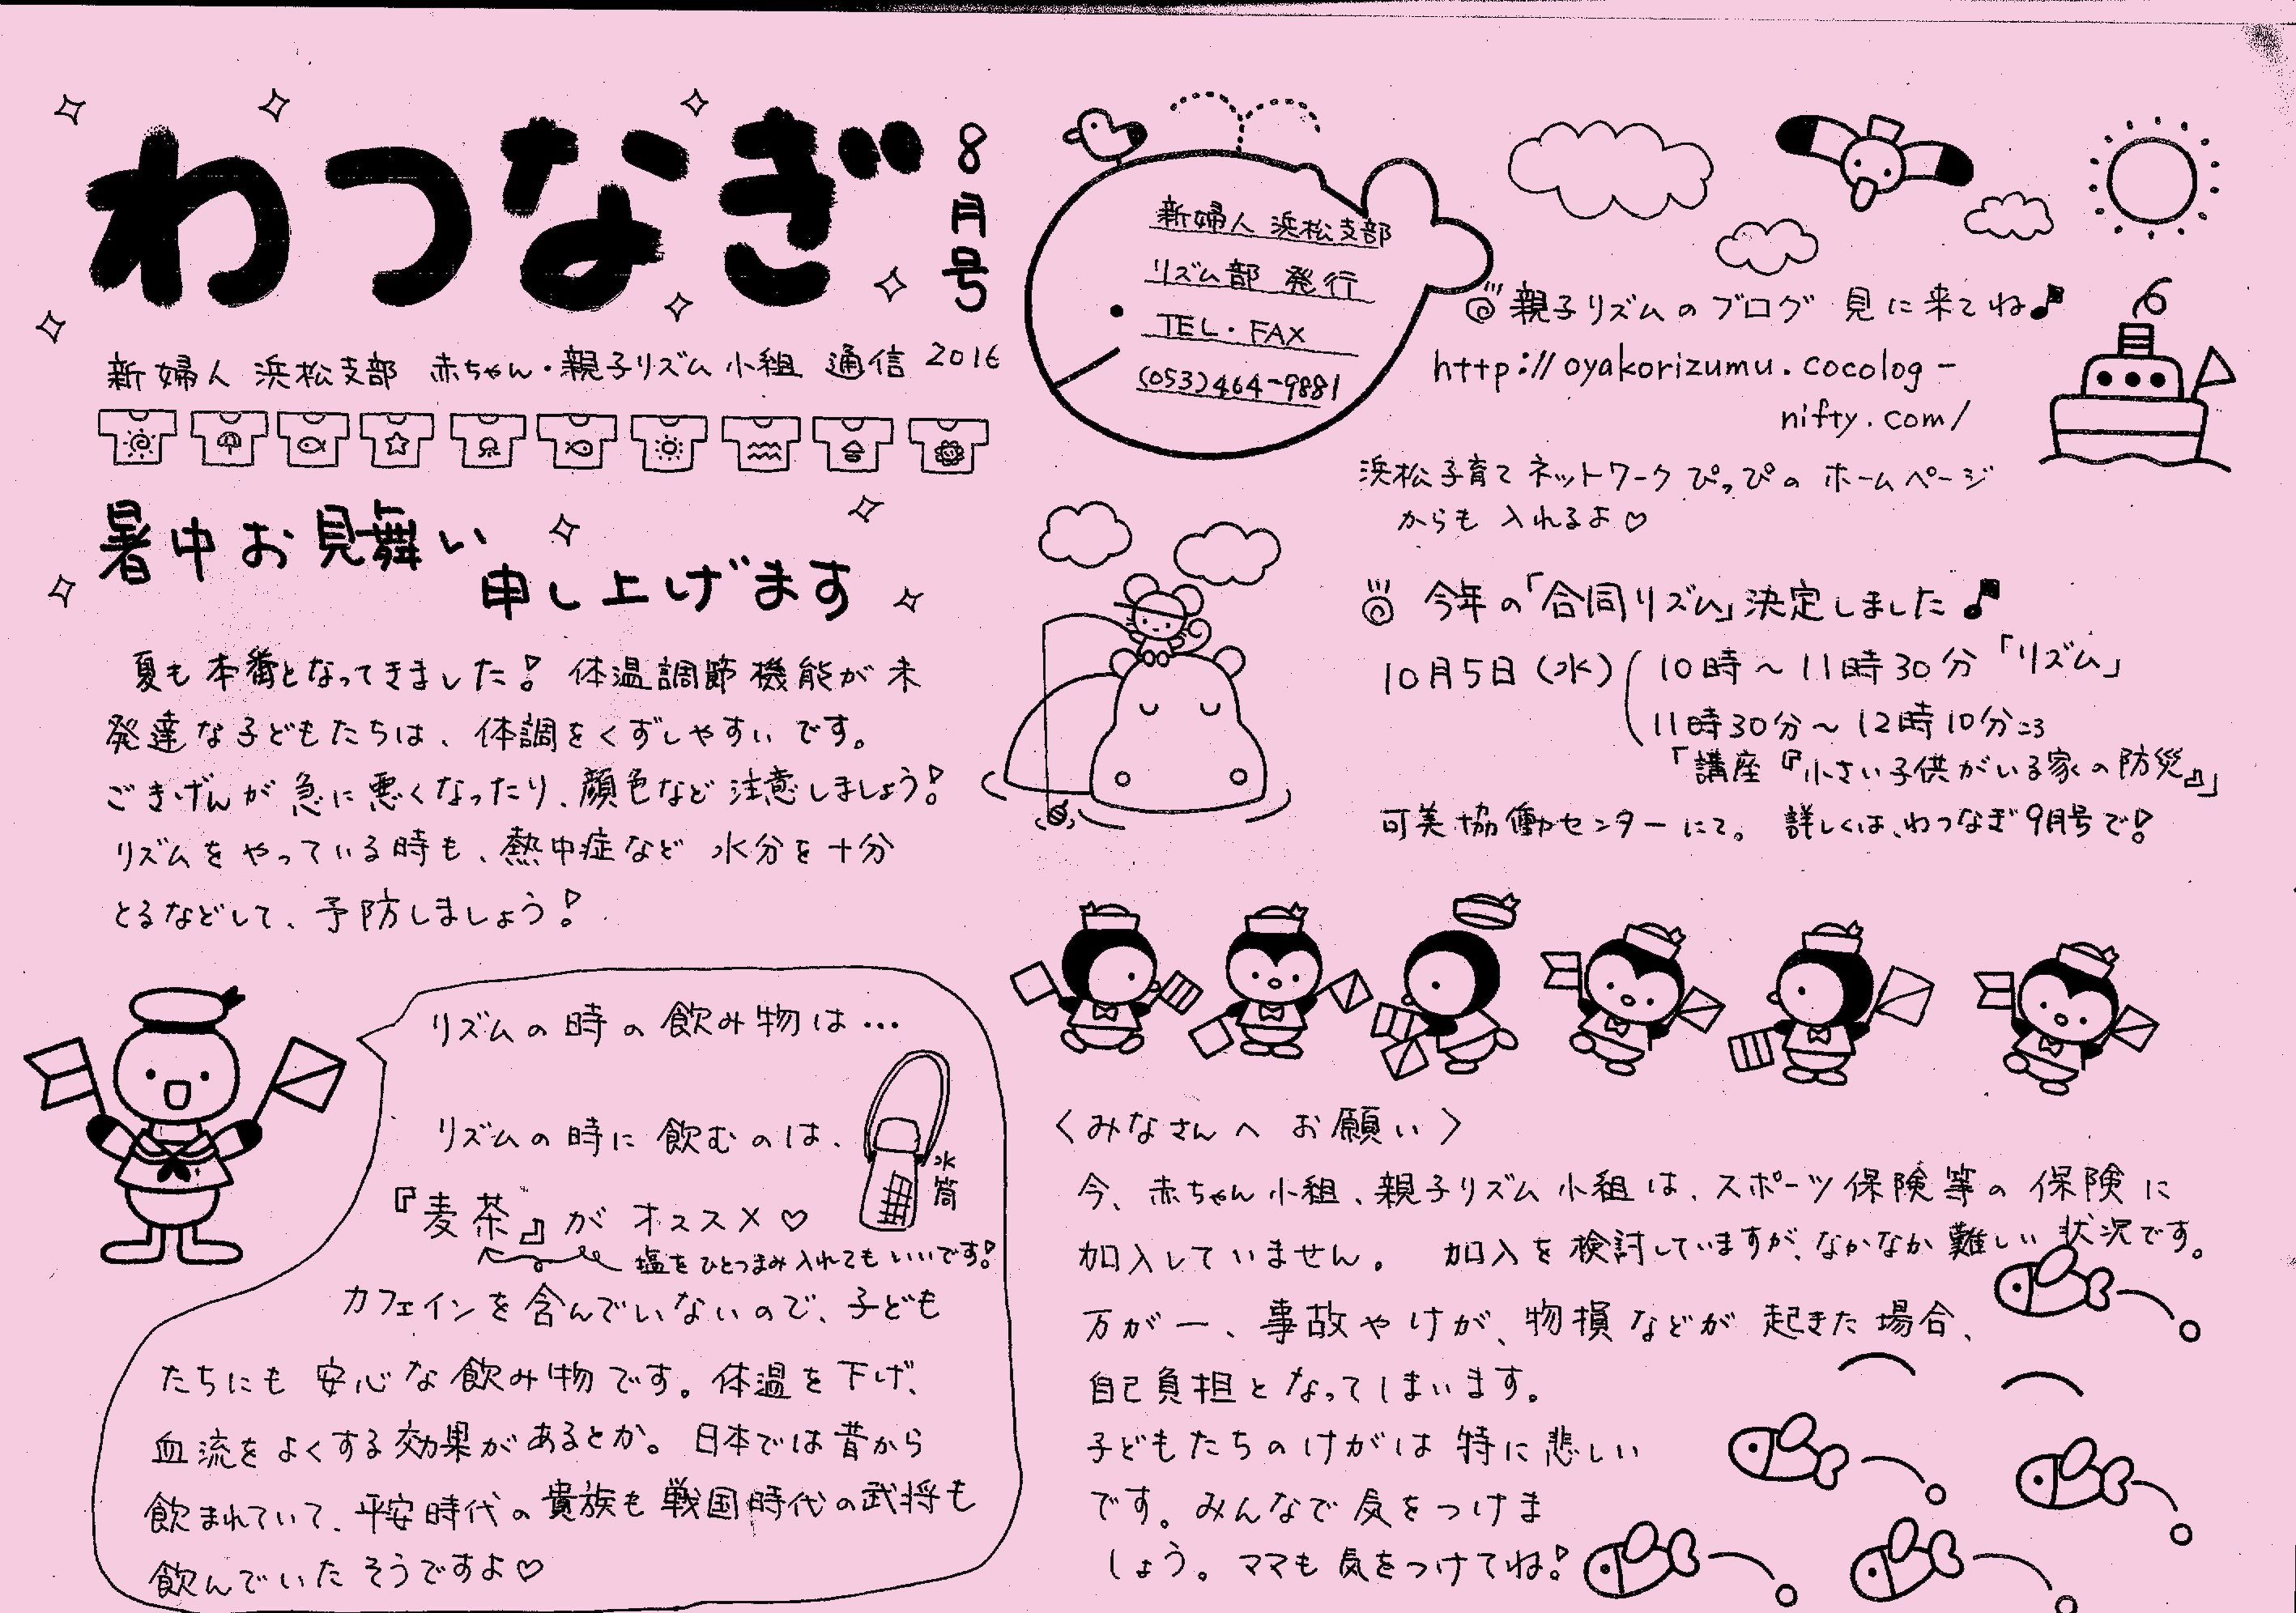 わつなぎ 8月号
新婦人 浜松支部 赤ちゃん・親子リズム小組 通信 2016
暑中お見舞い
申し上げます
夏も本番となってきました! 体温調節機能が未
発達な子どもたちは、体調をくずしやすいです。
ごきげんが急に悪くなったり、顔色など注意しましょう!
リズムをやっている時も、熱中症など水分を十分
とるなどして、予防しましょう!
リズムの時の飲み物は…
リズムの時に飲むのは、
水筒
『麦茶』がオススメ♡
塩をひとつまみ入れてもいいです!
カフェインを含んでいないので、子ども
たちにも安心な飲み物です。体温を下げ、
血流をよくする効果があるとか。日本では昔から
飲まれていて、平安時代の貴族も戦国時代の武将も
飲んでいたそうですよ♡
新婦人 浜松支部
リズム部 発行
TEL・FAX
(053)464-9881
親子リズムのブログ 見に来てね♪
http://oyakorizumu.cocolog-
nifty.com/
浜松子育てネットワークぴっぴのホームページ
からも入れるよ♡
今年の「合同リズム」決定しました♪
10月5日(水) 10時～11時30分「リズム」
11時30分～12時10分ころ
「講座『小さい子供がいる家の防災』」
可美協働センターにて。 詳しくは、わつなぎ9月号で!
〈みなさんへ お願い〉
今、赤ちゃん小組、親子リズム小組は、スポーツ保険等の保険に
加入していません。 加入を検討していますが、なかなか難しい状況です。
万が一、事故やけが、物損などが起きた場合、
自己負担となってしまいます。
子どもたちのけがは特に悲しい
です。みんなで気をつけま
しょう。ママも気をつけてね!